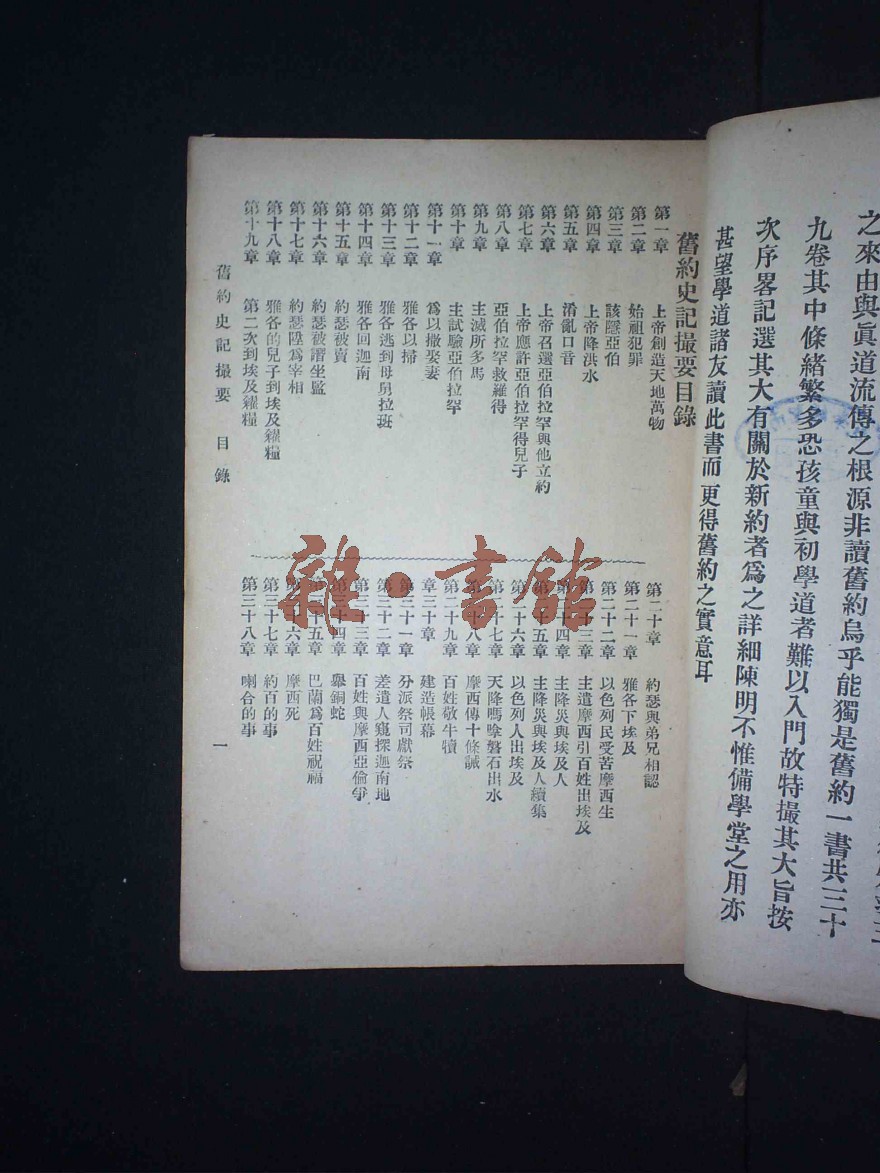 之來由與眞道流傳之根源非讀舊約烏乎能獨是舊約一書共三十
九卷其中條緒繁多恐孩童與初學道者難以入門故特撮其大旨按
次序畧記選其大有關於新約者爲之詳細陳明不惟備學堂之用亦
甚望學道諸友讀此書而更得舊約之實意耳
舊約史記撮要目錄
第一章 上帝創造天地萬物
第二章 始祖犯罪
第三章 該隱亞伯
第四章 上帝降洪水
第五章 淆亂口音
第六章 上帝召選亞伯拉罕與他立約
第七章 上帝應許亞伯拉罕得兒子
第八章 亞伯拉罕救羅得
第九章 主滅所多馬
第十章 主試驗亞伯拉罕
第十一章 爲以撒娶妻
第十二章 雅各以掃
第十三章 雅各逃到母舅拉班
第十四章 雅各回迦南
第十五章 約瑟被賣
第十六章 約瑟被譖坐監
第十七章 約瑟陞爲宰相
第十八章 雅各的兒子到埃及糴糧
第十九章 第二次到埃及糴糧
第二十章 約瑟與弟兄相認
第二十一章 雅各下埃及
第二十二章 以色列民受苦摩西生
第二十三章 主遣摩西引百姓出埃及
第二十四章 主降災與埃及人
第二十五章 主降災與埃及人續集
第二十六章 以色列人出埃及
第二十七章 天降嗎嗱磐石出水
第二十八章 摩西傳十條誡
第二十九章 百姓敬牛犢
章三十章 建造帳幕
第三十一章 分派祭司獻祭
第三十二章 差遣人窺探迦南地
第三十三章 百姓與摩西亞倫爭
第三十四章 舉銅蛇
第三十五章 巴蘭爲百姓祝福
第三十六章 摩西死
第三十七章 約百的事
第三十八章 喇合的事
舊約史記撮要 目錄 一
雜·書館